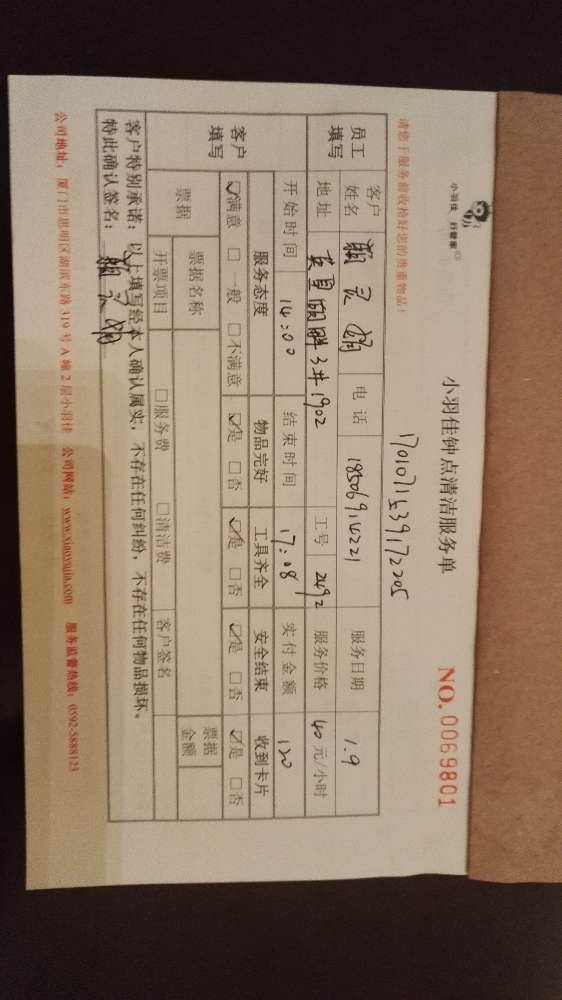 小羽佳 好管家
小羽佳钟点清洁服务单
NO. 0069801
1701071539172205
请您于服务前收检好您的贵重物品！
员工填写 客户姓名 电话 18506914221 服务日期 1.9
地址 3#1902 工号 2492 服务价格 40元/小时
开始时间 14:00 结束时间 17:08 实付金额 120
客户填写 服务态度 物品完好 工具齐全 安全结束 收到卡片
☑满意 □一般 □不满意 ☑是 □否 ☑是 □否 ☑是 □否 ☑是 □否
票据 票据名称 票据金额
开票项目 □服务费 □清洁费 客户签名
客户特别承诺：以上填写经本人确认属实，不存在任何纠纷，不存在任何物品损坏。
特此确认签名：
公司地址：厦门市思明区湖滨东路319号A幢2层小羽佳 公司网站：www.xiaoyujia.com 服务监督热线：0592-5888123